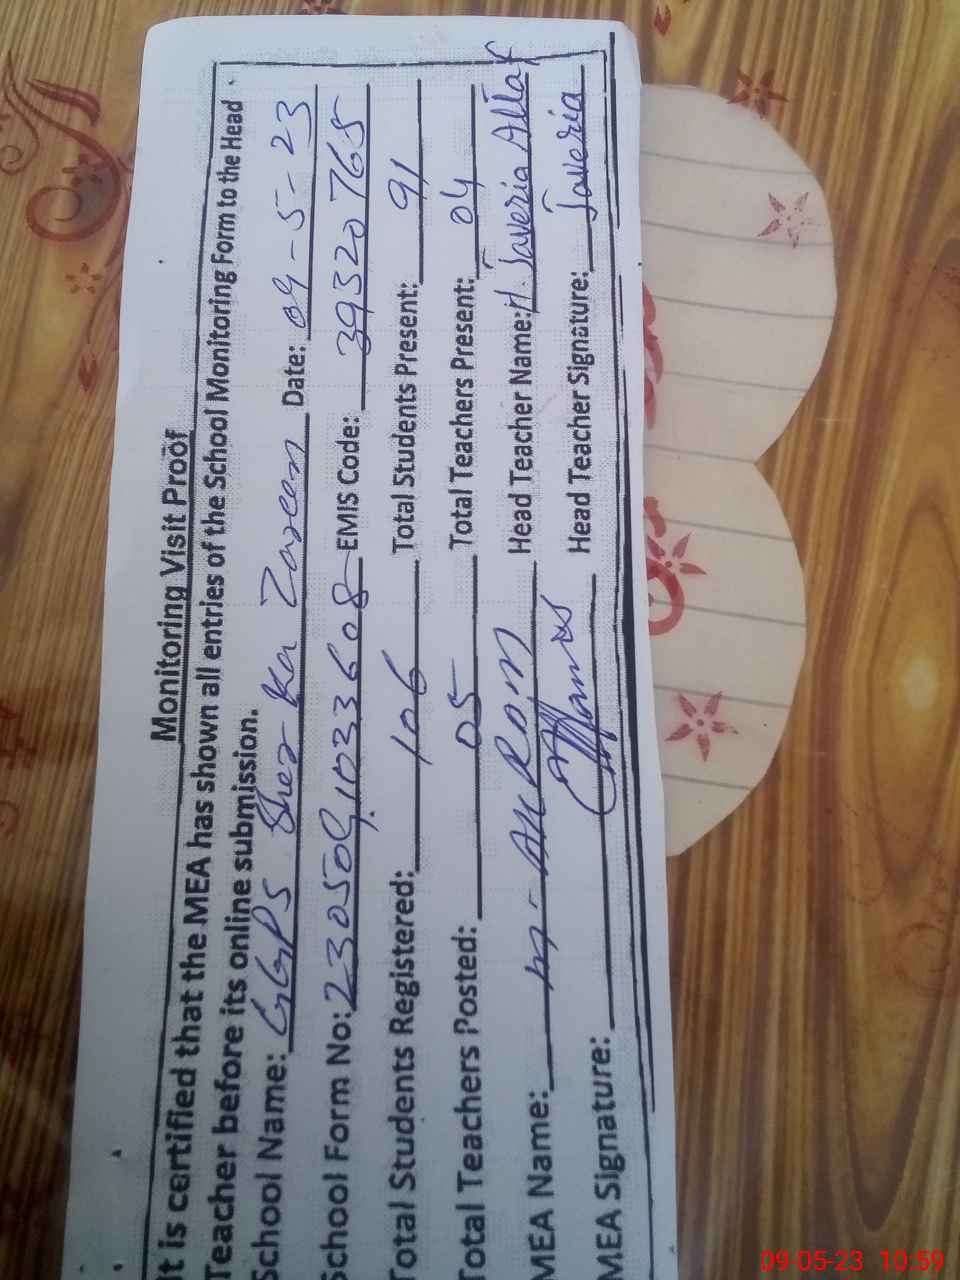 Monitoring Visit Proof
It is certified that the MEA has shown all entries of the School Monitoring Form to the Head
Teacher before its online submission.
School Name: GGPS Sher Ka Zareen Date: 09-5-23
School Form No: 230509,1033608 EMIS Code: 39320768
Total Students Registered: 106 Total Students Present: 91
Total Teachers Posted: 05 Total Teachers Present: 04
MEA Name: M-AKRAM Head Teacher Name: H. Javeria Altaf
MEA Signature: Head Teacher Signature: Javeria
09-05-23 10:59